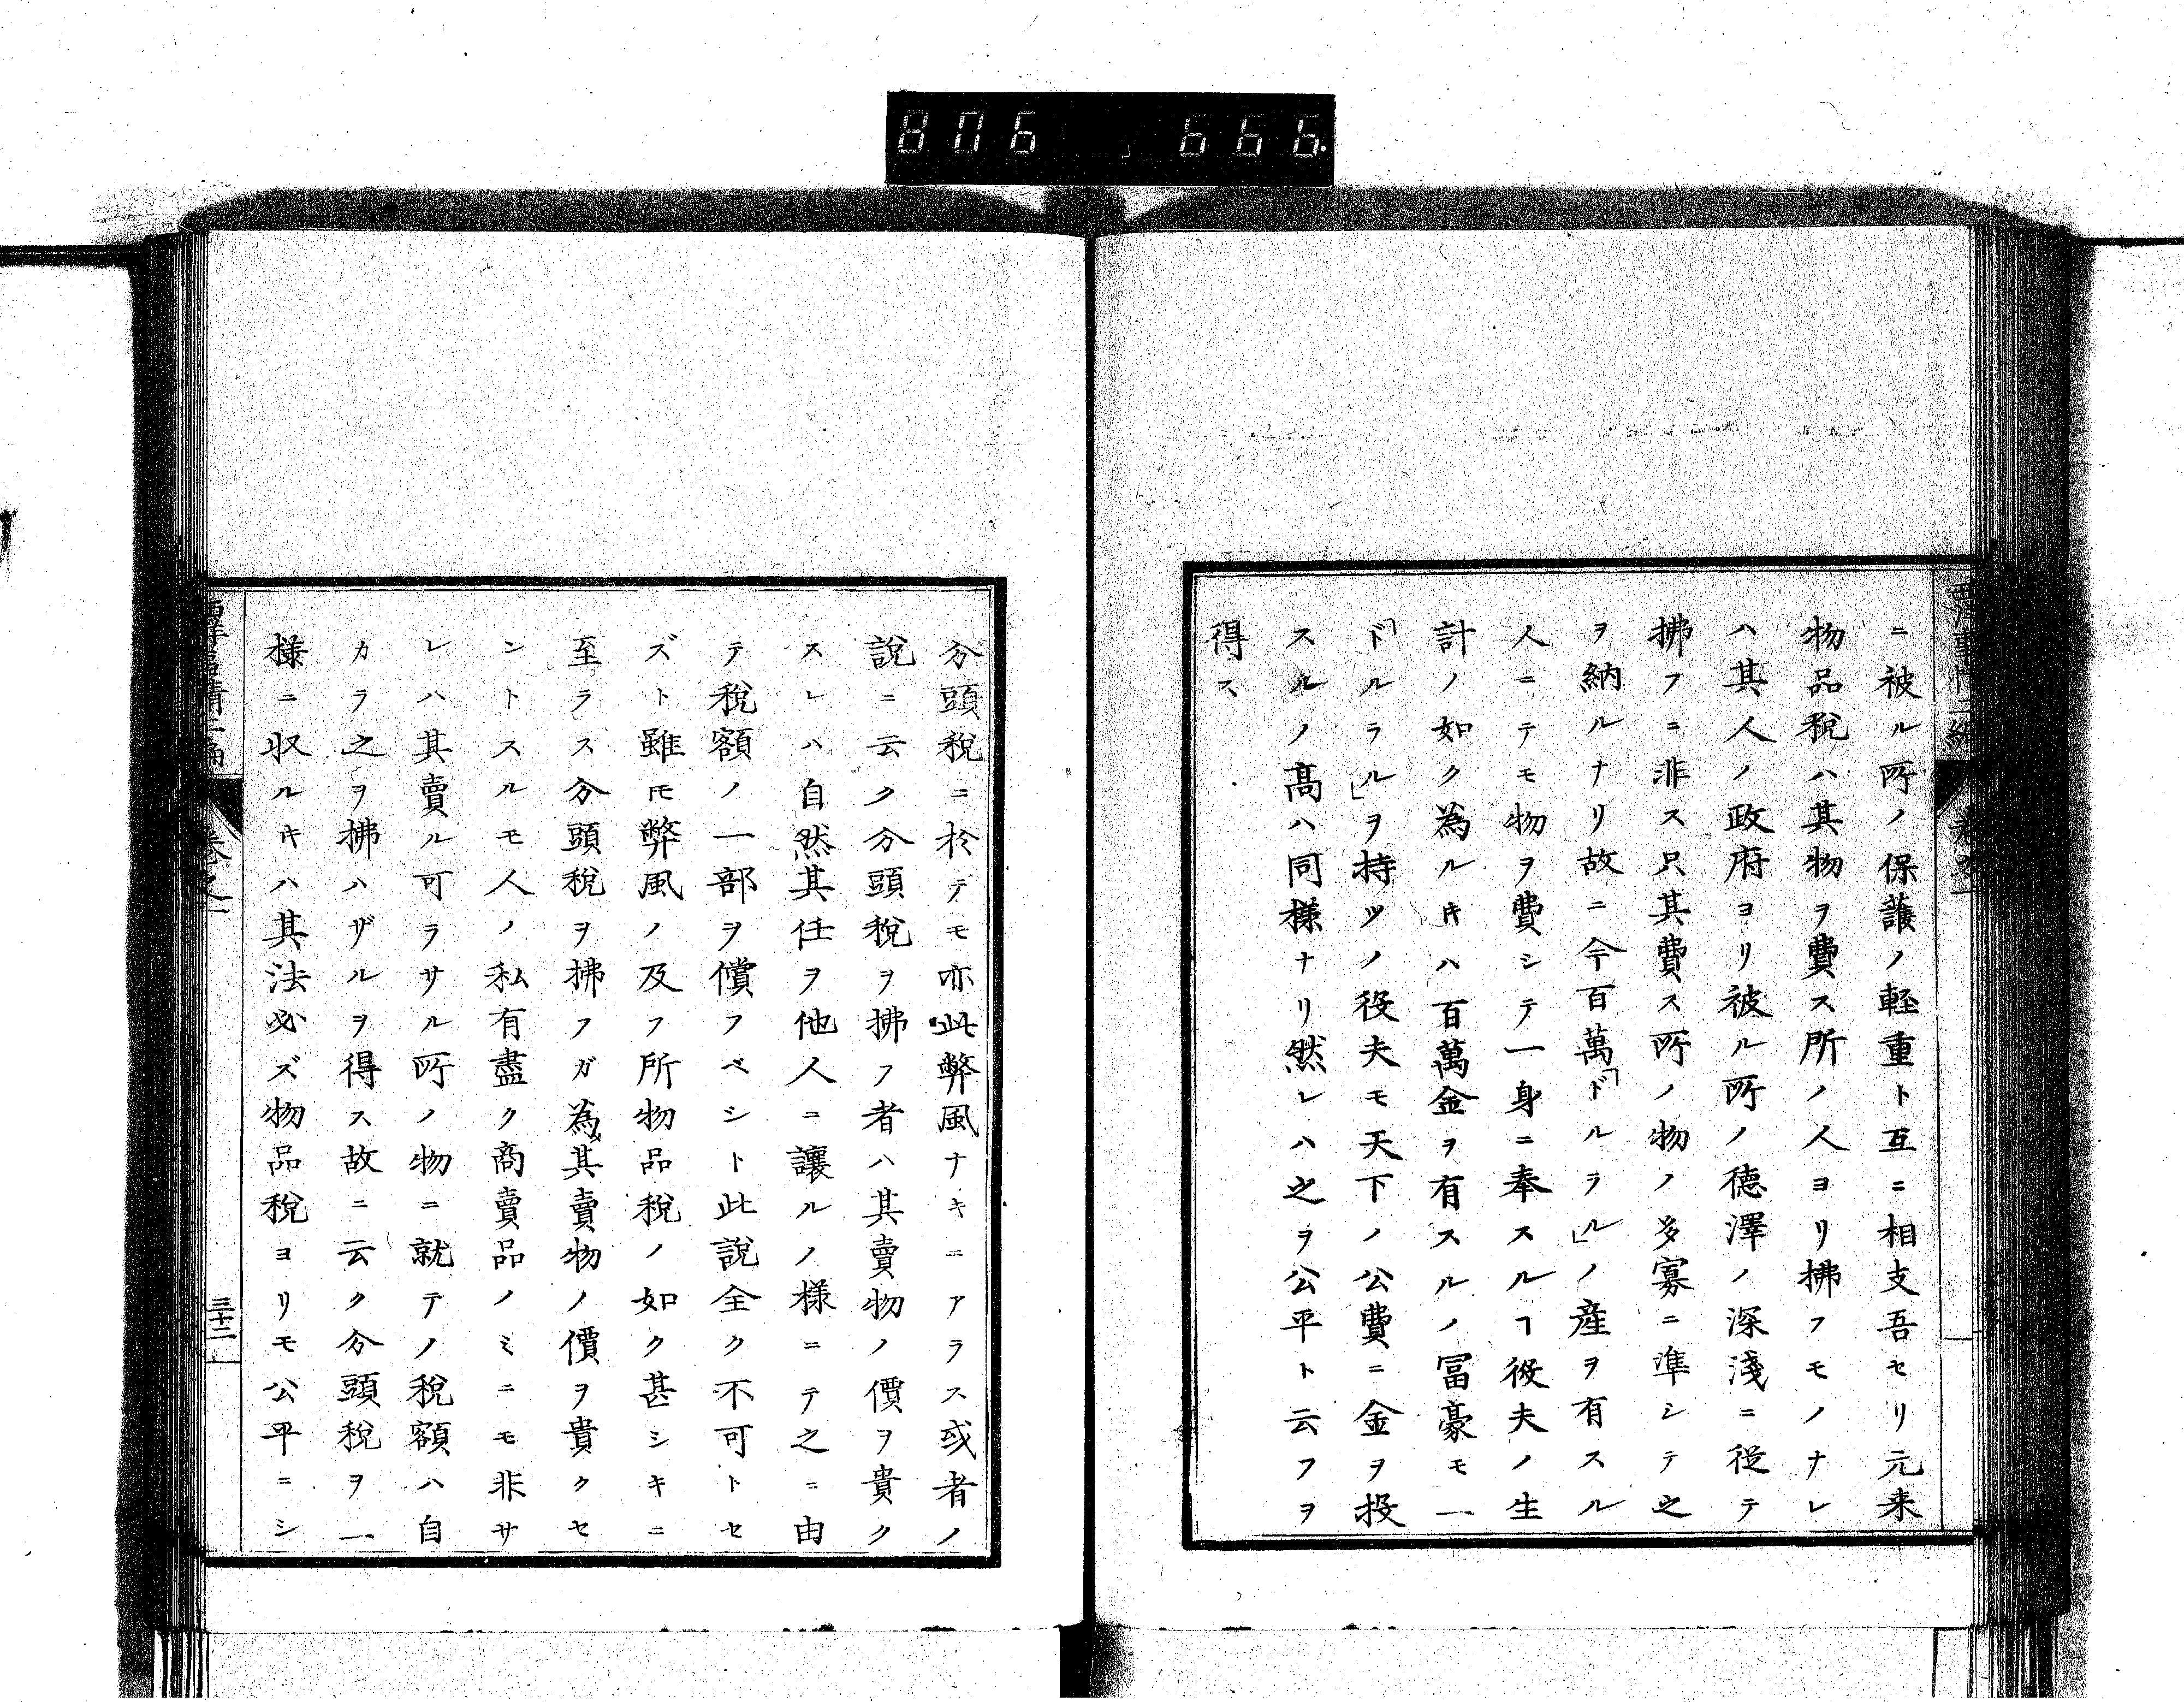 806 666.
西洋事情二編
卷之一
ニ被ル所ノ保護ノ軽重ト互ニ相支吾セリ元来
物品税ハ其物ヲ費ス所ノ人ヨリ拂フモノナレ
ハ其人ノ政府ヨリ被ル所ノ徳澤ノ深淺ニ従テ
拂フニ非ス只其費ス所ノ物ノ多寡ニ準シテ之
ヲ納ルナリ故ニ今百萬「ドルラル」ノ産ヲ有スル
人ニテモ物ヲ費シテ一身ニ奉スルヿ役夫ノ生
計ノ如ク為ルキハ百萬金ヲ有スルノ冨豪モ一
「ドルラル」ヲ持ツノ役夫モ天下ノ公費ニ金ヲ投
スルノ髙ハ同様ナリ然レハ之ヲ公平ト云フヲ
得ス
分頭税ニ於テモ亦此弊風ナキニアラス或者ノ
説ニ云ク分頭税ヲ拂フ者ハ其賣物ノ價ヲ貴ク
スレハ自然其任ヲ他人ニ讓ルノ様ニテ之ニ由
テ税額ノ一部ヲ償フベシト此説全ク不可トセ
ズト雖モ弊風ノ及フ所物品税ノ如ク甚シキニ
至ラス分頭税ヲ拂フガ為メ其賣物ノ價ヲ貴クセ
ントスルモ人ノ私有盡ク商賣品ノミニモ非サ
レハ其賣ル可ラサル所ノ物ニ就テノ税額ハ自
カラ之ヲ拂ハザルヲ得ス故ニ云ク分頭税ヲ一
様ニ収ルキハ其法必ズ物品税ヨリモ公平ニシ
西洋事情二編
卷之一
三十二